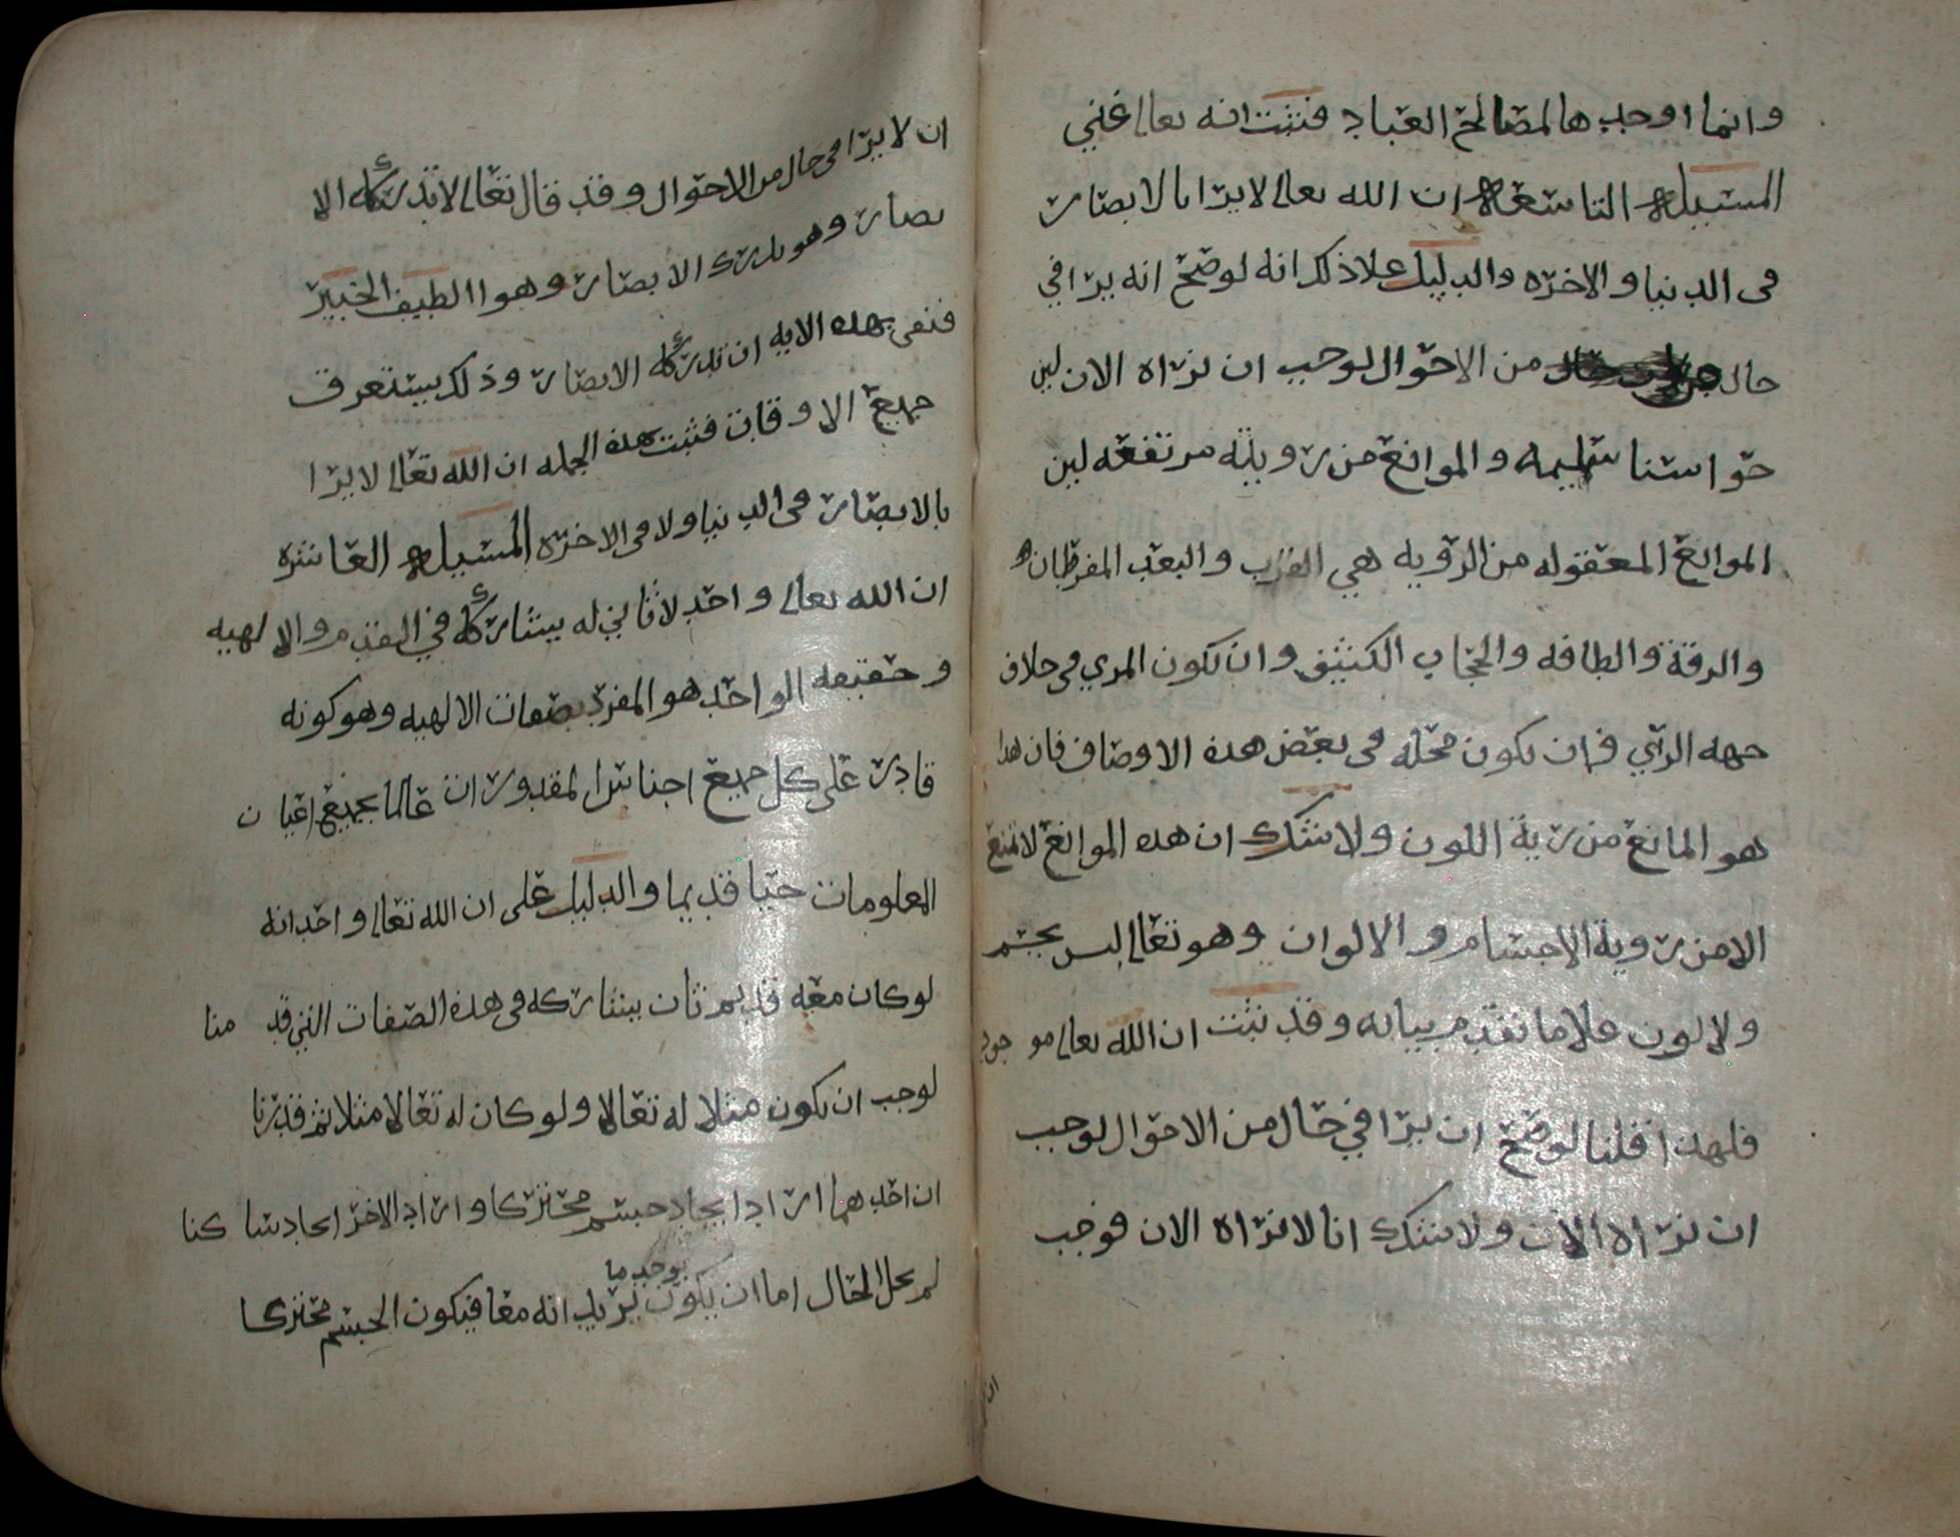 وانما اوجبها لمصالح العباد فثبت انه تعالى غني
المسيله التاسعه ان الله تعالى لا يرا بالابصار
في الدنيا والاخره والدليل علا ذلك انه لو صح انه يرا في
حال من الاحوال لوجب ان نراه الان لين
حواسنا سليمه والموانع من رويته مرتفعه لين
الموانع المعقوله من الرويه هي القرب والبعد المفرطان
والرقة والطافه والحجاب الكثيف وان يكون المري في خلاف
جهه الراي وان يكون محله في بعض هذه الاوصاف فان هذا
هو المانع من رية اللون ولا شك ان هذه الموانع لا تمنع
الا من روية الاجسام والالوان وهو تعالى ليس بجسم
ولا لون علا ما تقدم بيانه وقد ثبت ان الله تعالى موجود
فلهذا قلنا لو صح ان يرا في حال من الاحوال لوجب
ان نراه الان ولا شك انا لا نراه الان فوجب
ان لا يرا في حال من الاحوال وقد قال تعالى لا تدركه الا
بصار وهو يدرك الابصار وهوا الطيف الخبير
فنفى بهذه الايه ان تدركه الابصار وذلك يستغرق
جميع الاوقات فثبت بهذه الجمله ان الله تعالى لا يرا
بالابصار في الدنيا ولا في الاخره المسيله العاشره
ان الله تعالى واحد لا ثاني له يشاركه في القدم والا لهيه
وحقيقه الواحد هو المفرد بصفات الالهيه وهو كونه
قادر على كل جميع اجناس المقدورات عالما بجميع اعيان
المعلومات حيا قديما والدليل على ان الله تعالى واحد انه
لو كان معه قديم ثان يشاركه في هذه الصفات التي قد منا
لوجب ان يكون مثلا له تعالا ولو كان له تعالا مثلا ثم قدرنا
ان احدهما اراد ايجاد جسم محتركا واراد الاخر ايجاد سا كنا
لم يخل الحال اما ان يكون يوجد ما يريد انه معا فيكون الجسم محتركا